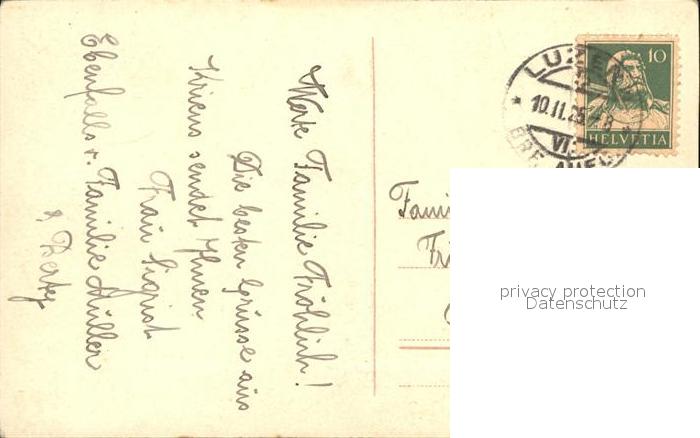 Werte Familie Fröhlich!
Die besten Grüsse aus
Kriens sendet Ihnen
Frau Sigrist
Ebenfalls v. Familie Müller
& Berty
LUZERN
10.II.25
VI
10
HELVETIA
Fami
privacy protection
Datenschutz